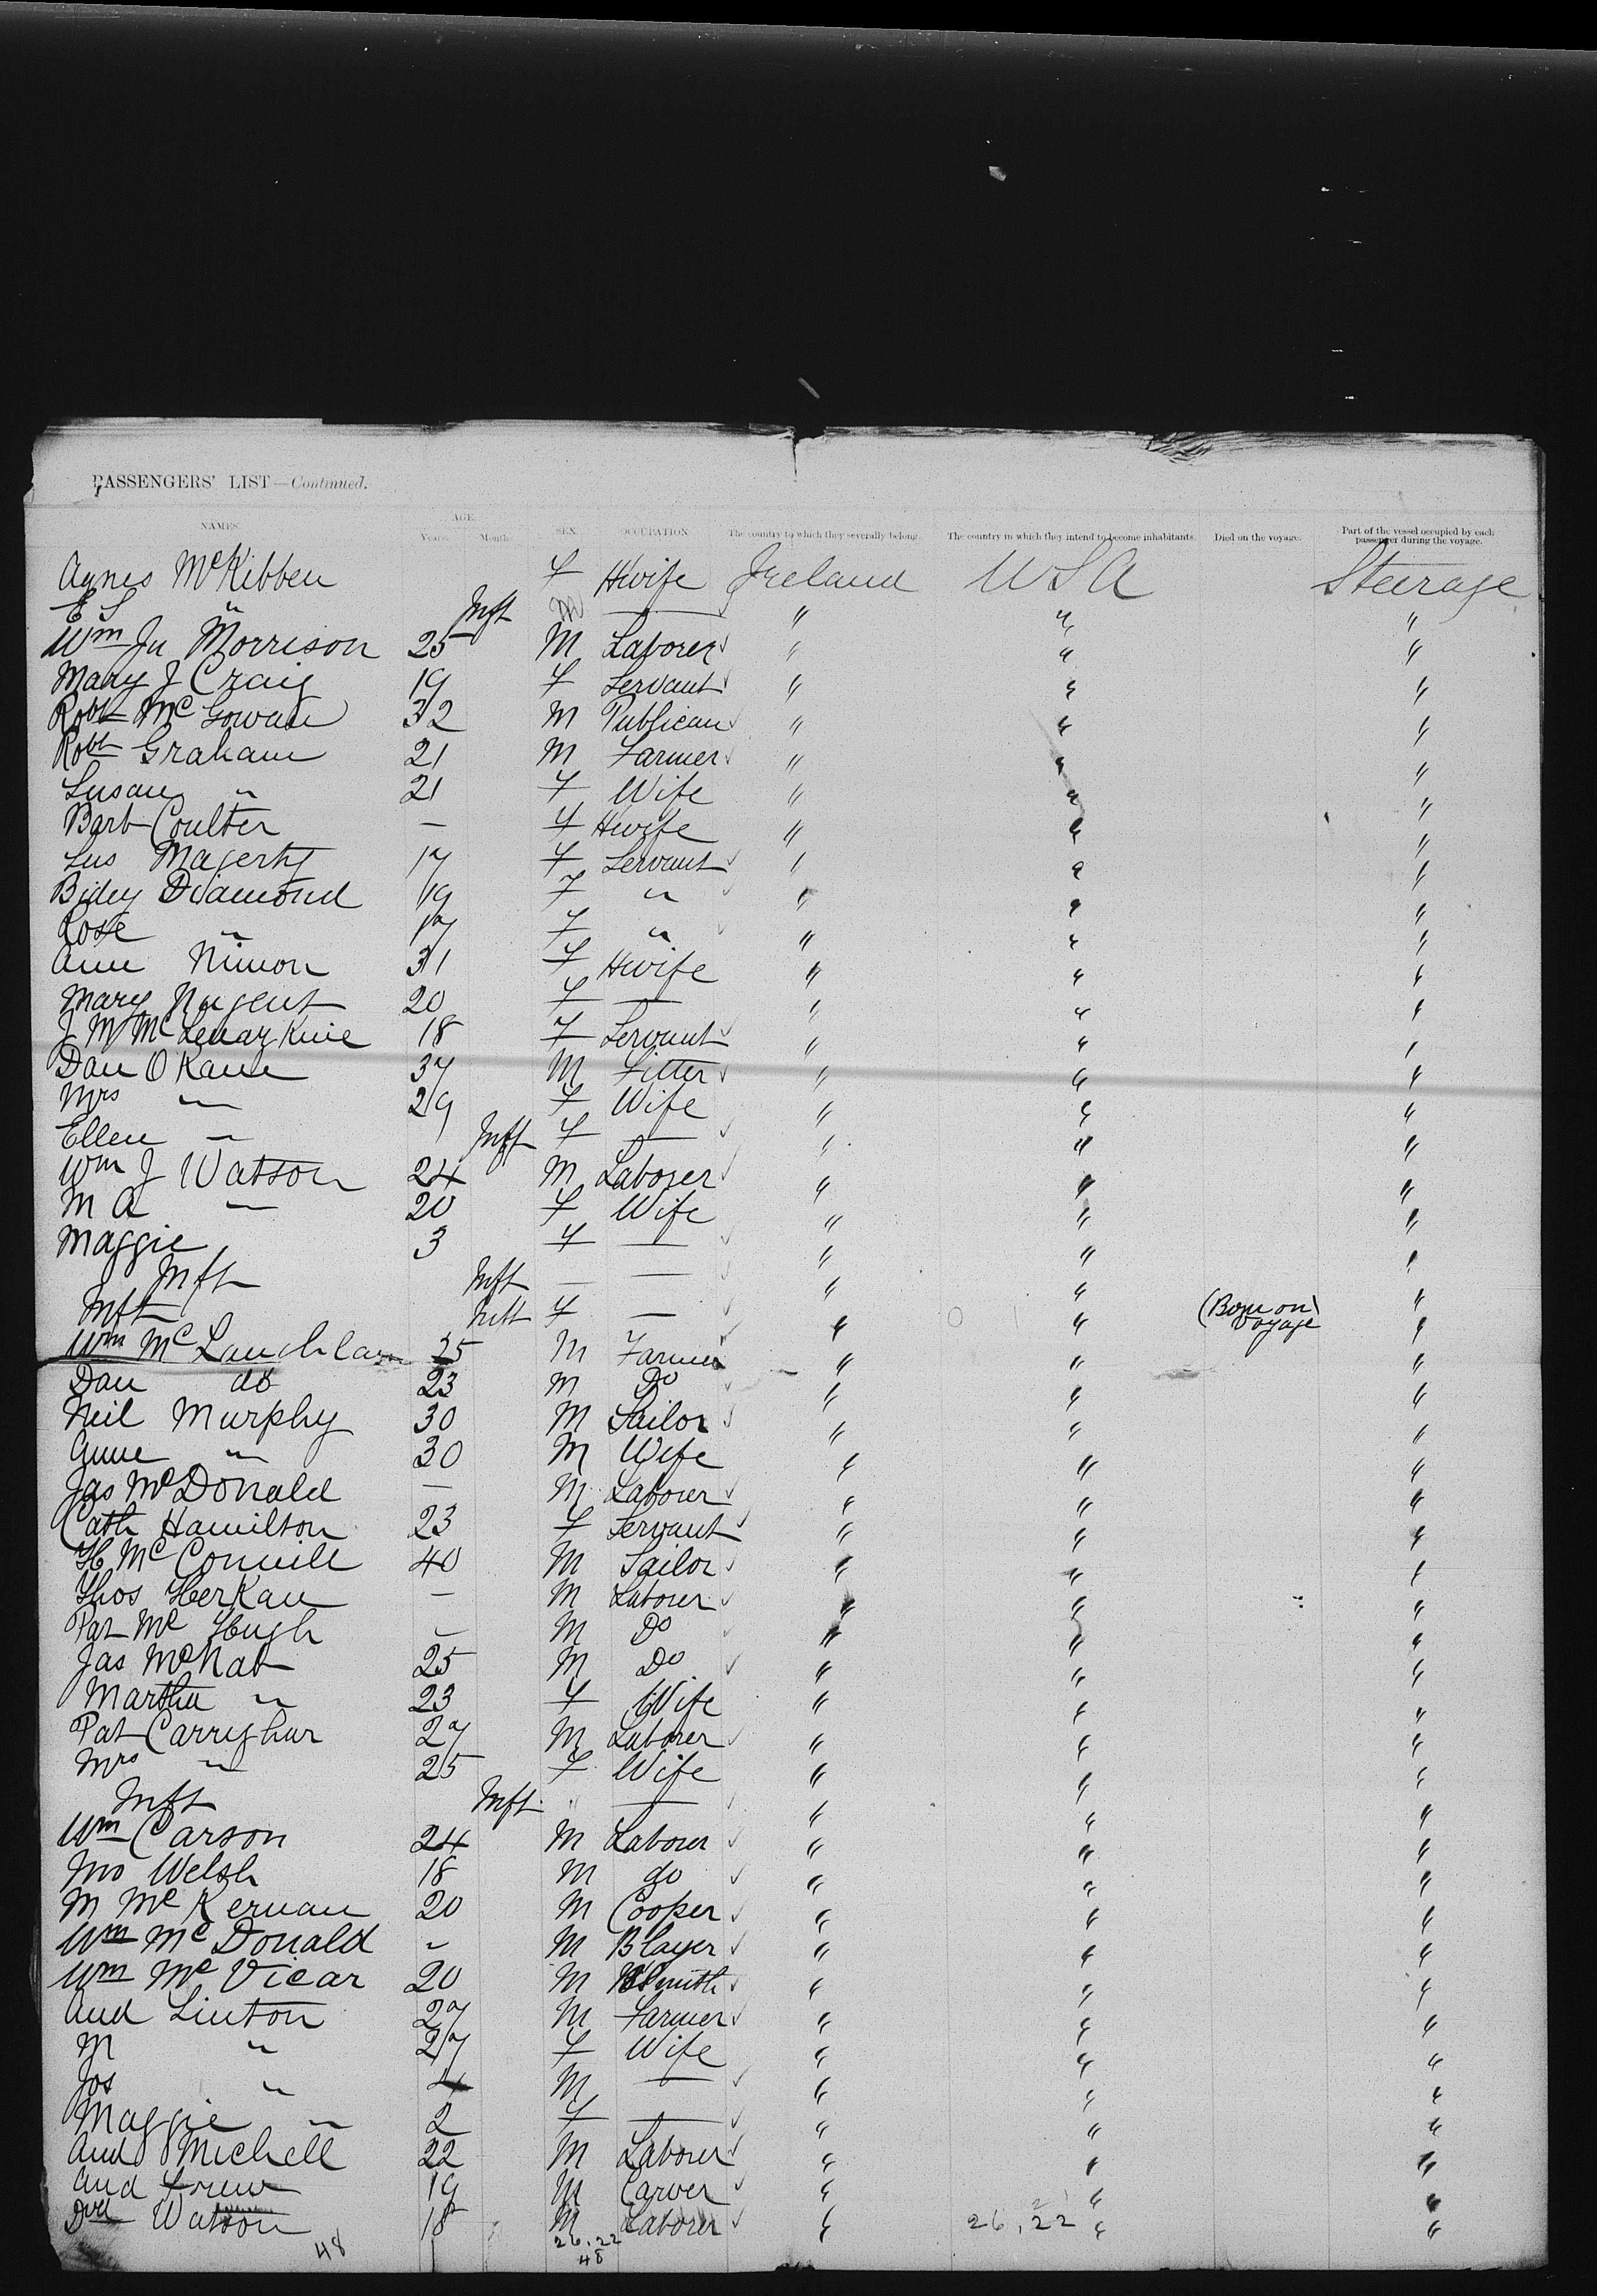 PASSENGERS' LIST—Continued.
NAMES. AGE. Years. Months. SEX. OCCUPATION. The country to which they severally belong. The country in which they intend to become inhabitants. Died on the voyage. Part of the vessel occupied by each passenger during the voyage.
Agnes McKibben F Hwife Ireland USA Steerage
E S " Inft — " " "
Wm Jn Morrison 25 M Laborer " " "
Mary J Craig 19 F Servant " " "
Robt McGowan 32 M Publican " " "
Robt Graham 21 M Farmer " " "
Susan " 21 F Wife " " "
Barb Coulter — F Hwife " " "
Sus Magerty 17 F Servant " " "
Bidey Diamond 19 F " " " "
Rose " 17 F " " " "
Ann Nimon 31 F Hwife " " "
Mary Nugent 20 F — " " "
J M 18 F Servant " " "
Dan O Kane 37 M Fitter " " "
Mrs " 29 F Wife " " "
Ellen " Inft F — " " "
Wm J Watson 24 M Laborer " " "
M A " 20 F Wife " " "
Maggie 3 F — " " "
Inft Inft — — " " "
Inft Inft F — " " (Born on voyage) "
Wm McLauchlan 25 M Farmer " " "
Dan do 23 M Do " " "
Neil Murphy 30 M Sailor " " "
Anne " 30 M Wife " " "
Jas McDonald — M Laborer " " "
Cath Hamilton 23 F Servant " " "
H McConvill 40 M Sailor " " "
Thos Herkan — M Laborer " " "
Pat McHugh — M Do " " "
Jas McNab 25 M Do " " "
Martha " 23 F Wife " " "
Pat Carryhar 27 M Laborer " " "
Mrs " 25 F Wife " " "
Inft Inft " — " " "
Wm Carson 24 M Laborer " " "
Jno Welsh 18 M do " " "
M McKernan 20 M Cooper " " "
Wm McDonald - M Blayer " " "
Wm McVicar 20 M BSmith " " "
And Linton 27 M Farmer " " "
M " 27 F Wife " " "
Jos " 4 M — " " "
Maggie " 2 F — " " "
And Michell 22 M Laborer " " "
And Frew 19 M Carver " " "
Dvd Watson 18 M Laborer " " "
48 26.22 26.22
48